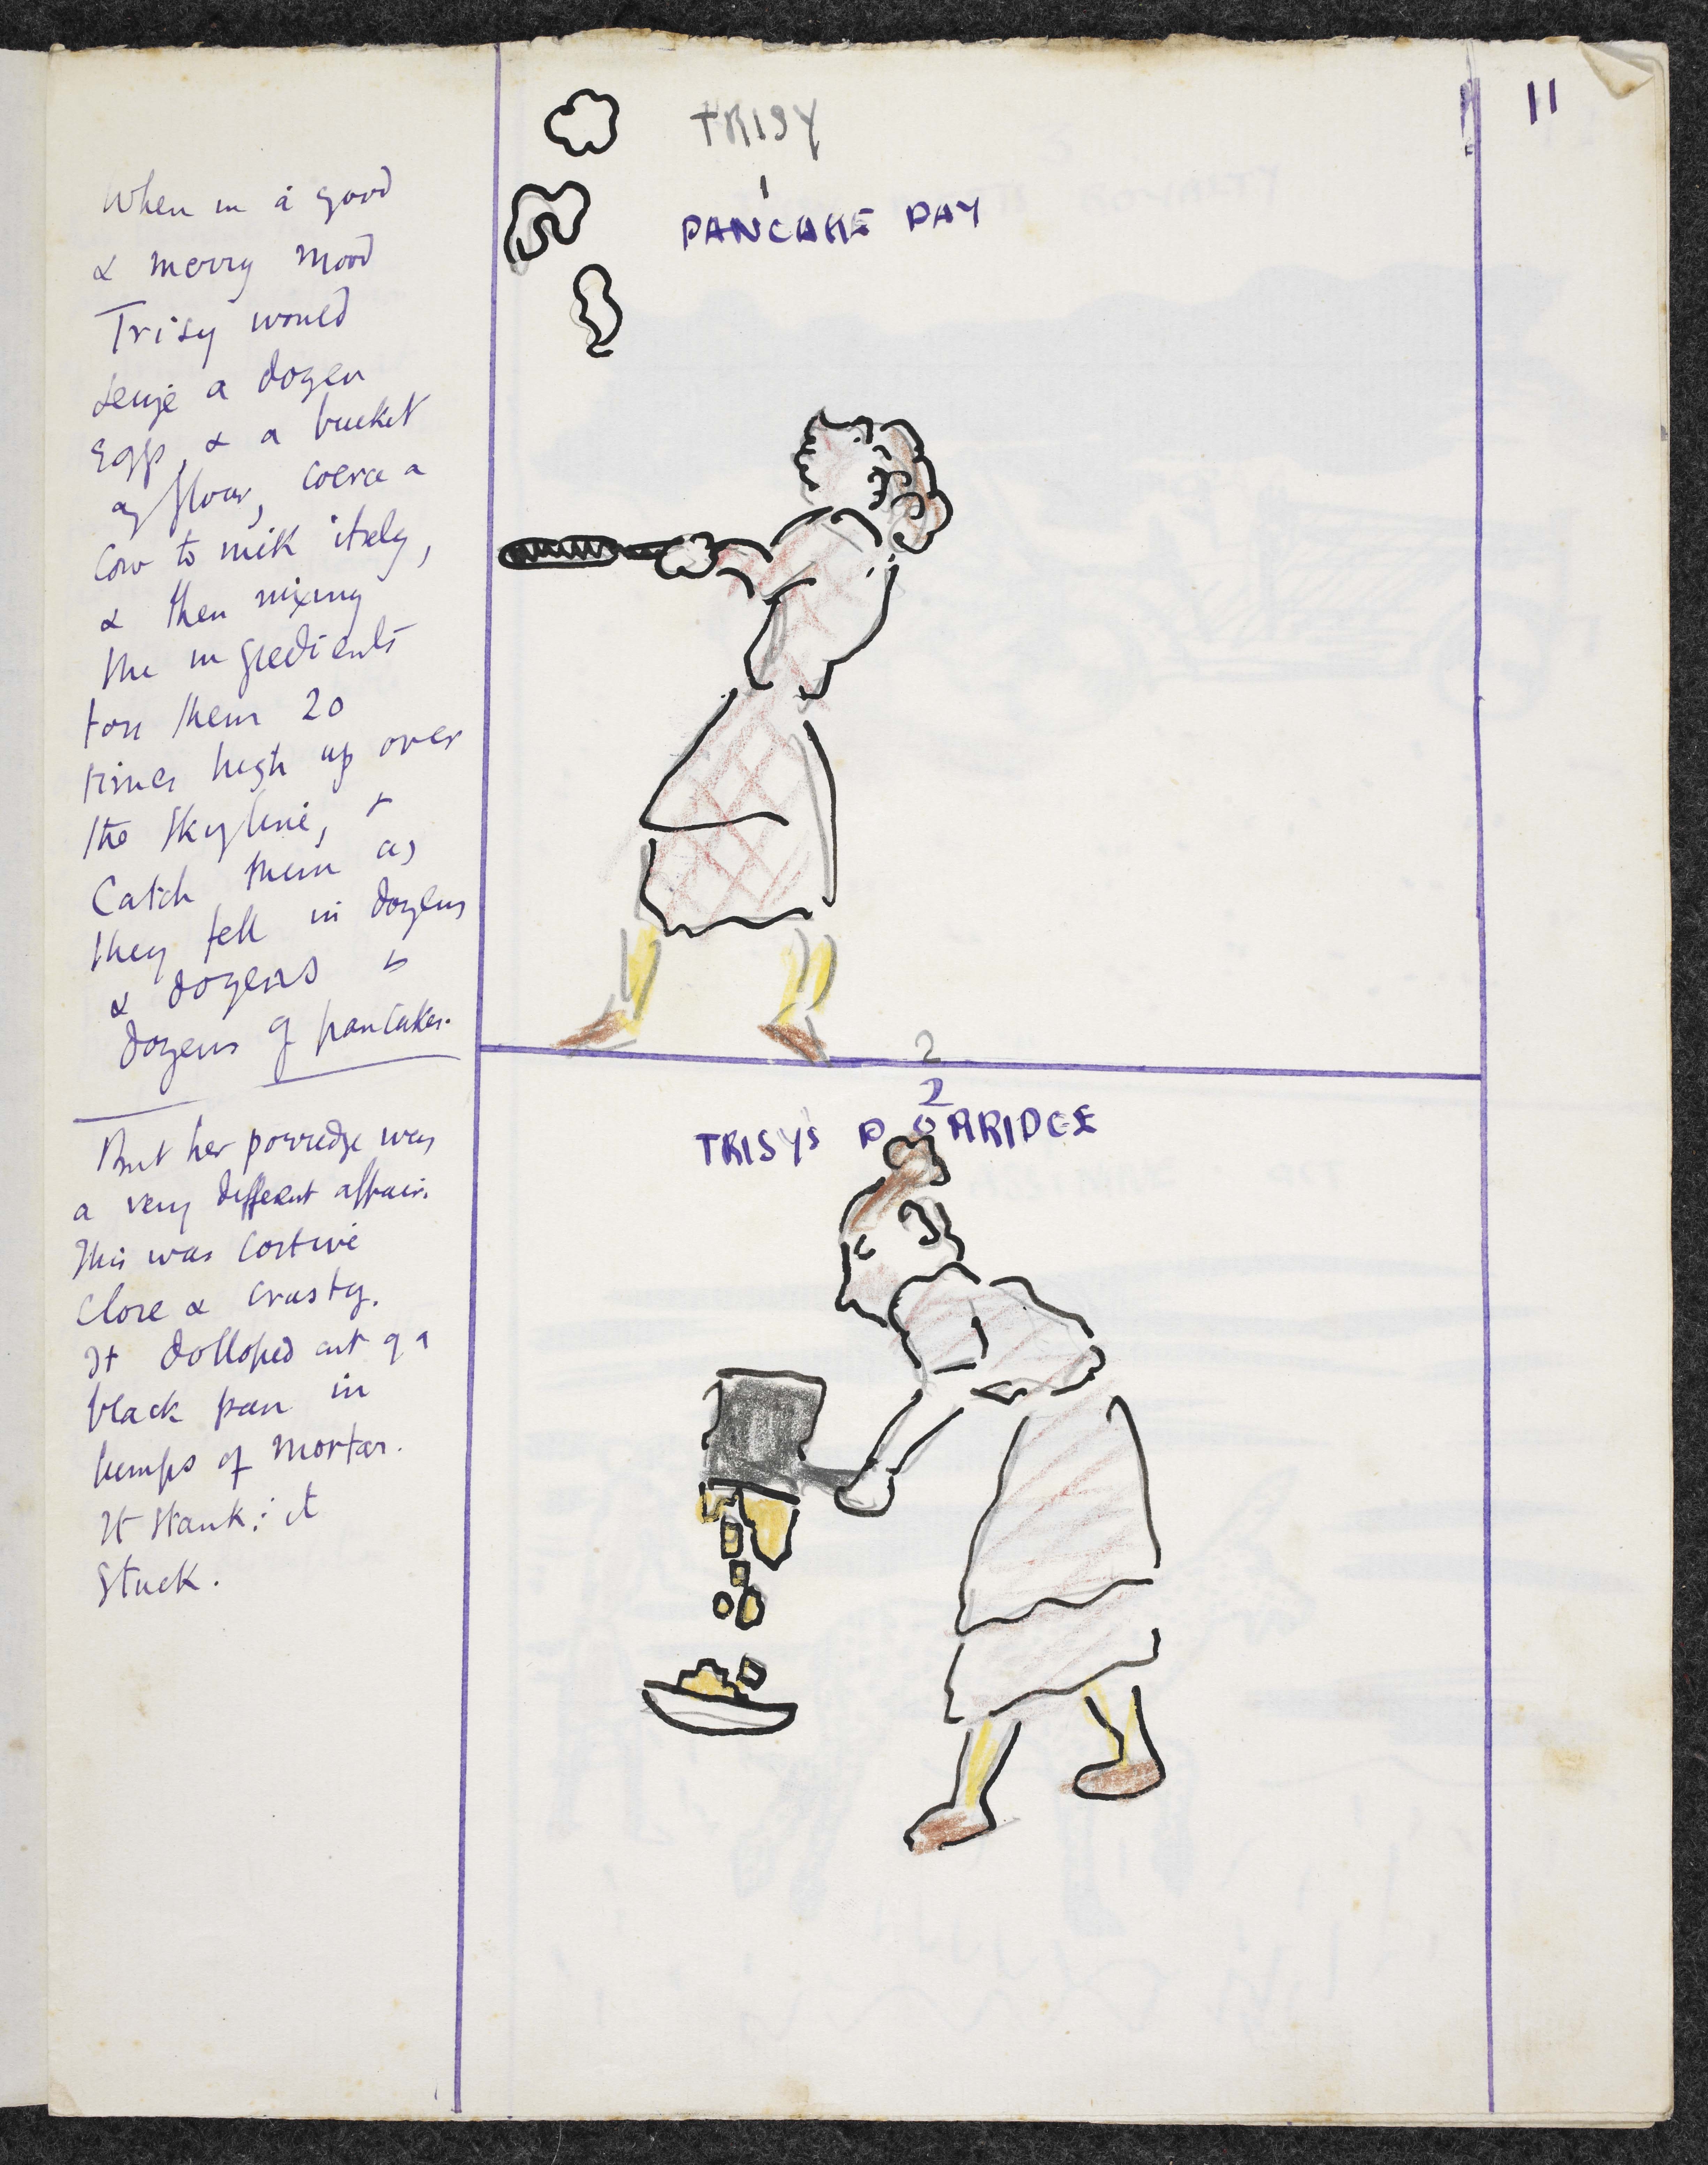 11
TRISY
1
PANCAKE DAY
When in a good
& merry mood
Trisy would
seize a dozen
eggs, & a bucket
of flour, coerce a
cow to milk itself,
& then mixing
the ingredients
toss them 20
times high up over
the skyline, &
catch them as
they fell in dozens
& dozens &
dozens of pancakes.
2
2
TRISYS PORRIDGE
But her porridge was
a very different affair.
This was costive
close & crusty.
It dolloped out of a
black pan in
lumps of mortar.
It stank: it
stuck.